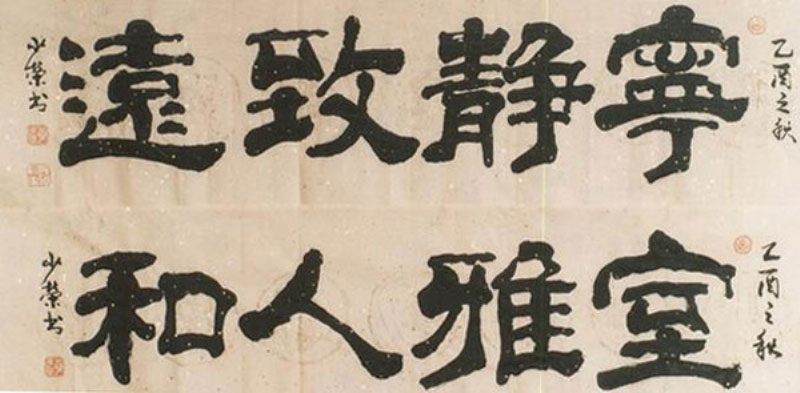 乙酉之秋
寧靜致遠
少榮书
乙酉之秋
室雅人和
少榮书